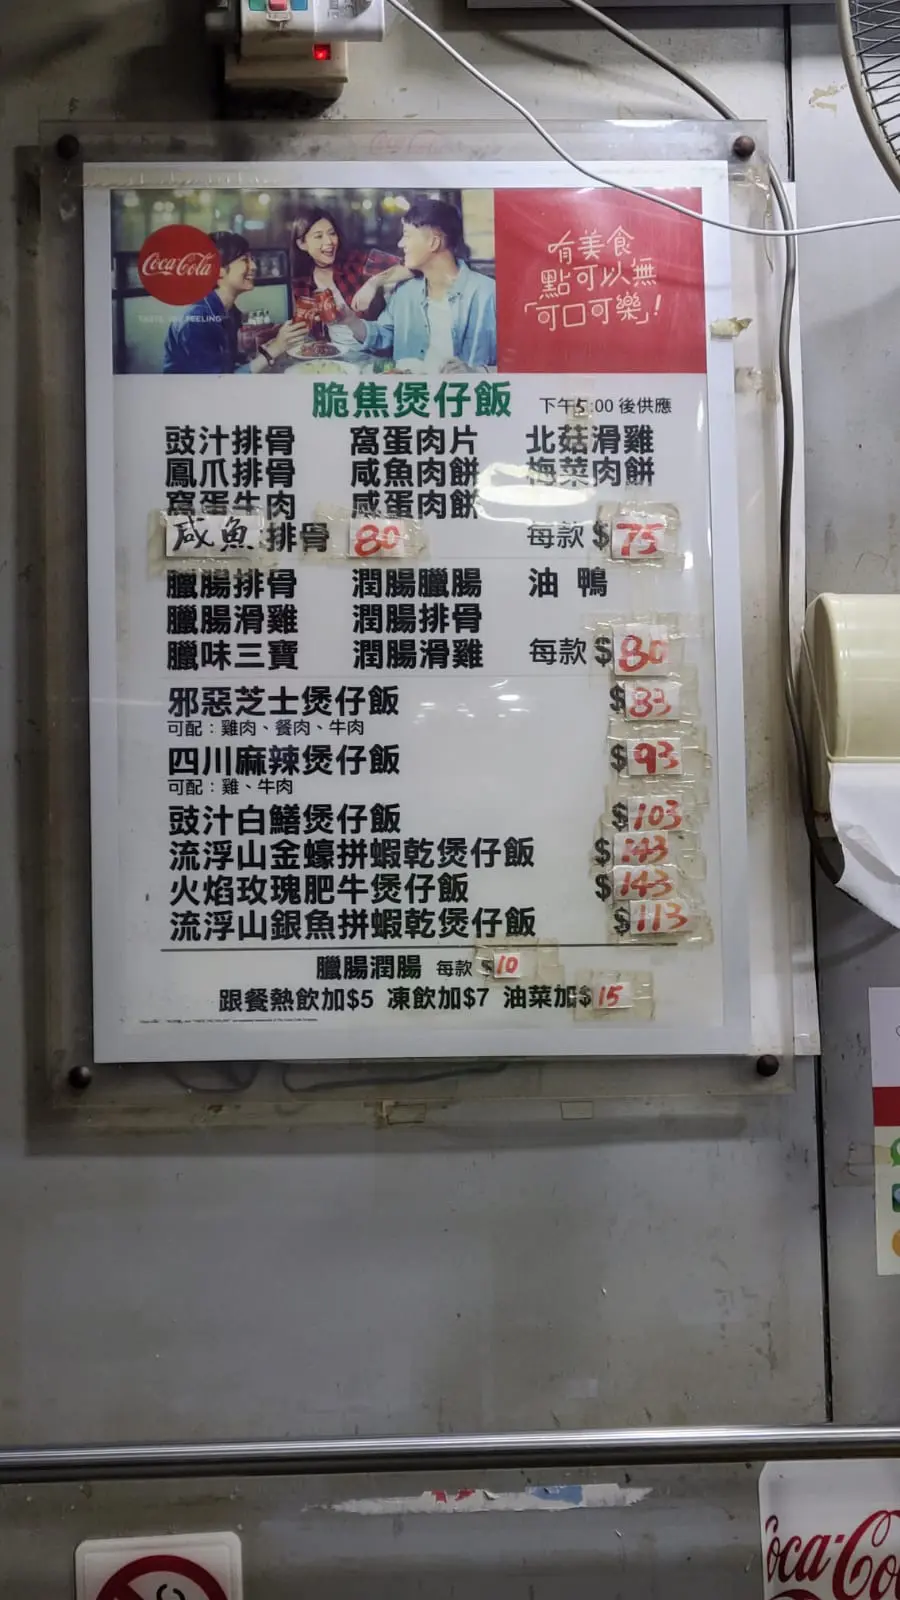 Coca-Cola
TASTE THE FEELING
有美食
點可以無
「可口可樂」!
脆焦煲仔飯 下午5:00後供應
豉汁排骨 窩蛋肉片 北菇滑雞
鳳爪排骨 咸魚肉餅 梅菜肉餅
窩蛋牛肉 咸蛋肉餅
咸魚排骨 80 每款$75
臘腸排骨 潤腸臘腸 油鴨
臘腸滑雞 潤腸排骨
臘味三寶 潤腸滑雞 每款$80
邪惡芝士煲仔飯 $83
可配：雞肉、餐肉、牛肉
四川麻辣煲仔飯 $93
可配：雞、牛肉
豉汁白鱔煲仔飯 $103
流浮山金蠔拼蝦乾煲仔飯 $143
火焰玫瑰肥牛煲仔飯 $143
流浮山銀魚拼蝦乾煲仔飯 $113
臘腸潤腸 每款$10
跟餐熱飲加$5 凍飲加$7 油菜加$15